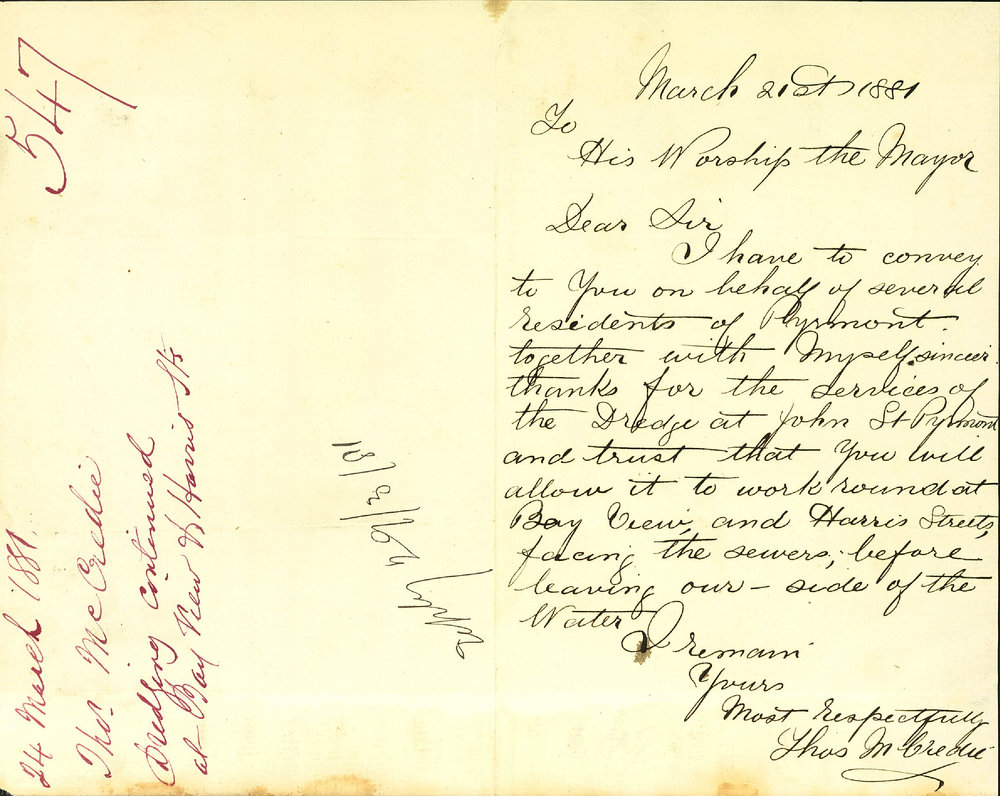 547
24 March 1881.
Thos. McCredie
Dredging continued
at Bay View & Harris Sts
26/3/81
March 21st 1881
To
His Worship the Mayor
Dear Sir
I have to convey
to You on behalf of several
residents of Pyrmont.
together with Myself. sincer
thanks for the services of
the Dredge at John St Pyrmont
and trust that You will
allow it to work round at
Bay View, and Harris Streets,
facing the sewers, before
leaving our - side of the
Water
I remain
Yours
Most Respectfully
Thos McCredie